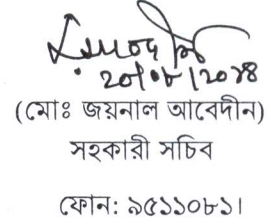 ২০/০৮/২০১৪
(মোঃ জয়নাল আবেদীন)
সহকারী সচিব
ফোন: ৯৫১১০৮১।